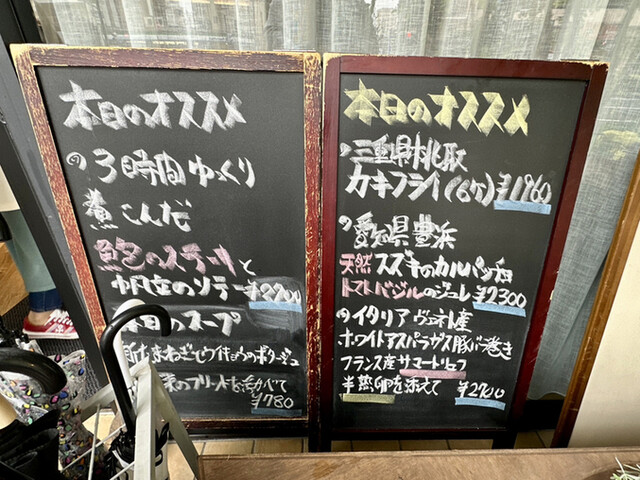 本日のオススメ
の3時間ゆっくり
煮こんだ
鮑のステーキと
帆立のソテー ¥2700
本日のスープ
新たまねぎと のポタージュ
のフリットを浮かべて
¥780
本日のオススメ
の三重県桃取
カキフライ(6ケ) ¥1960
の愛知県豊浜
天然スズキのカルパッチョ
トマトバジルのジュレ ¥2300
のイタリアヴェネト産
ホワイトアスパラガス豚バラ巻き
フランス産サマートリュフ
半熟卵を添えて ¥2900